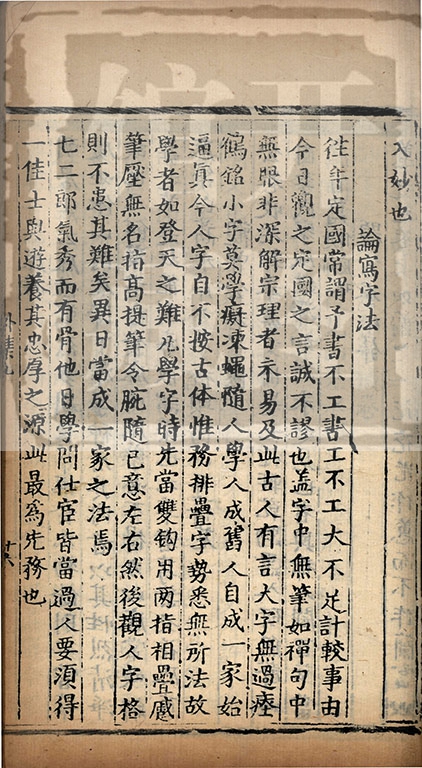 入妙也
論寫字法
往年定國常謂予書不工書工不工大不足計較事由
今日觀之定國之言誠不謬也蓋字中無筆如禪句中
無眼非深解宗理者未易及此古人有言大字無過瘞
鶴銘小字莫學癡凍蠅隨人學人成舊人自成一家始
逼真今人字自不按古体惟務排疊字勢悉無所法故
學者如登天之難凡學字時先當雙鉤用兩指相疊蹙
筆壓無名指高提筆令腕隨己意左右然後觀人字格
則不患其難矣異日當成一家之法焉
七二郎氣秀而有骨他日學問仕宦皆當過人要須得
一佳士與遊養其忠厚之源此最為先務也
外集九
十六